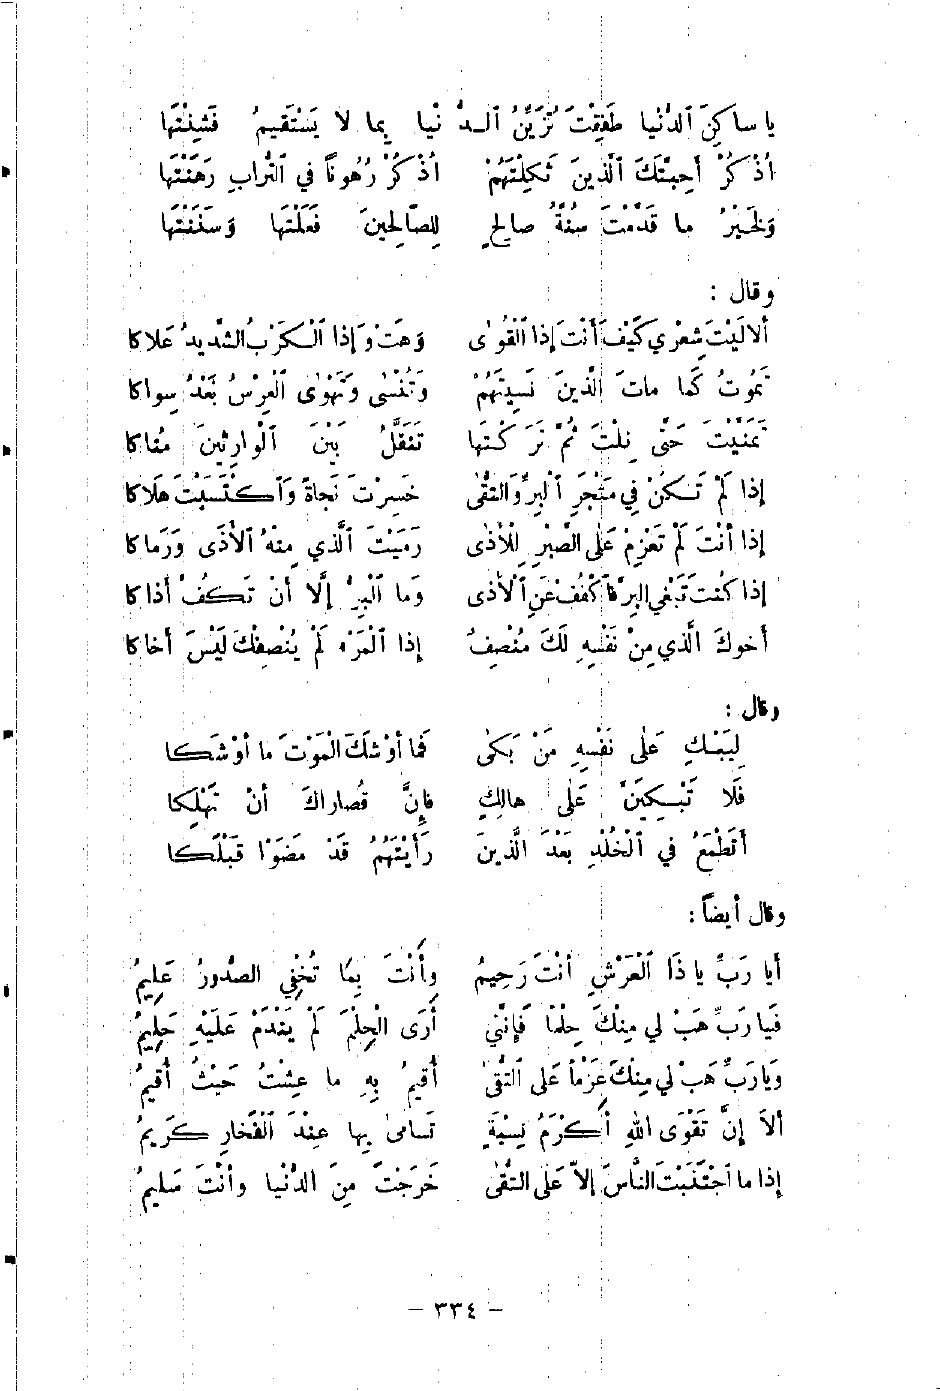 يا ساكِنَ ٱلدُّنيا طَفِقْتَ تُزَيِّنُ ٱلـدُّ نْيا بِما لا يَسْتَقيمُ فَشِنْتَها
اُذْكُرْ أَحِبَّتَكَ ٱلَّذينَ ثَكِلْتَهُمْ اُذْكُرْ رُهُوناً في ٱلتُّرابِ رَهَنْتَها
وَلَخَيْرُ ما قَدَّمْتَ سُنَّةُ صالحٍ لِلصّالِحينَ فَعَلْتَها وَسَنَنْتَها
وقال :
ألا لَيْتَ شِعْري كَيْفَ أَنْتَ إذا ٱلْقُوٰى وَهَتْ وَإذا ٱلْـكَرْبُ الشَّديدُ عَلاكا
تَموتُ كَما ماتَ الَّذينَ نَسيتَهُمْ وَتُنْسٰى وَتَهْوٰى ٱلْعِرْسُ بَعْدُ سِواكا
تَمَنَّيْتَ حَتّى نِلْتَ ثُمَّ تَرَكْتَها تَنَقَّلُ بَيْنَ ٱلْوارِثينَ مُناكا
إذا لَمْ تَـكُنْ في مَتْجَرِ ٱلْبِرِّ وَالتُّقٰى خَسِرْتَ نَجاةً وَٱكْتَسَبْتَ هَلاكا
إذا أَنْتَ لَمْ تَعْزِمْ عَلَى الصَّبْرِ لِلْأَذٰى رَمَيْتَ ٱلَّذي مِنْهُ ٱلْأَذٰى وَرَماكا
إذا كُنْتَ تَبْغي البِرَّ فَٱكْفُفْ عَنِ ٱلْأَذٰى وَما ٱلْبِرُّ إلَّا أَنْ تَـكُفَّ أَذاكا
أَخوكَ الَّذي مِنْ نَفْسِهِ لَكَ مُنْصِفٌ إذا ٱلْمَرْءُ لَمْ يُنْصِفْكَ لَيْسَ أَخاكا
وقال :
لِيَبْـكِ عَلٰى نَفْسِهِ مَنْ بَكٰى فَما أَوْشَكَ الْمَوْتَ ما أَوْشَـكا
فَلا تَبْـكِيَنَّ عَلٰى هالِكٍ فإنَّ قُصاراكَ أَنْ تَهْلِكا
أَتَطْمَعُ في ٱلْخُلْدِ بَعْدَ الَّذينَ رَأَيْتَهُمُ قَدْ مَضَوْا قَبْلَكا
وقال أيضاً :
أيا رَبِّ يا ذَا ٱلْعَرْشِ أَنْتَ رَحيمُ وأَنْتَ بِمَا تُخْفِي الصُّدورُ عَلِيمُ
فَيا رَبِّ هَبْ لي مِنْكَ حِلْماً فَإِنَّني أَرَى الْحِلْمَ لَمْ يَنْدَمْ عَلَيْهِ حَلِيمُ
وَيا رَبِّ هَبْ لي مِنْكَ عَزْماً عَلى التُّقىٰ أُقيمُ بِهِ ما عِشْتُ حَيْثُ أُقيمُ
ألاَ إنَّ تَقْوَى اللهِ أَكْرَمُ نِسْبَةٍ تَسامىٰ بِها عِنْدَ ٱلْفَخارِ كَريمُ
إذا ما ٱجْتَنَبْتَ النَّاسَ إلاَّ عَلَى التُّقٰى خَرَجْتَ مِنَ الدُّنْيا وأَنْتَ سَليمُ
— ٣٣٤ —